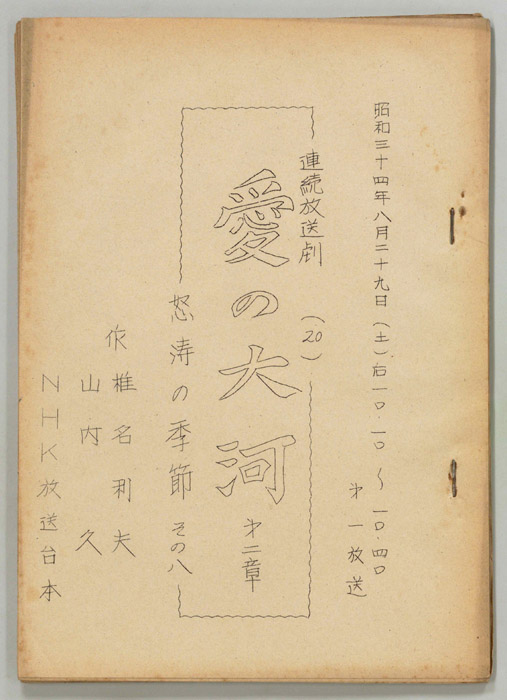 昭和三十四年八月二十九日（土）后一〇・一〇～一〇・四〇
才一放送
連続放送劇（20）
愛の大河 才二章
怒涛の季節 その八
作 椎名利夫
山内 久
NHK放送台本